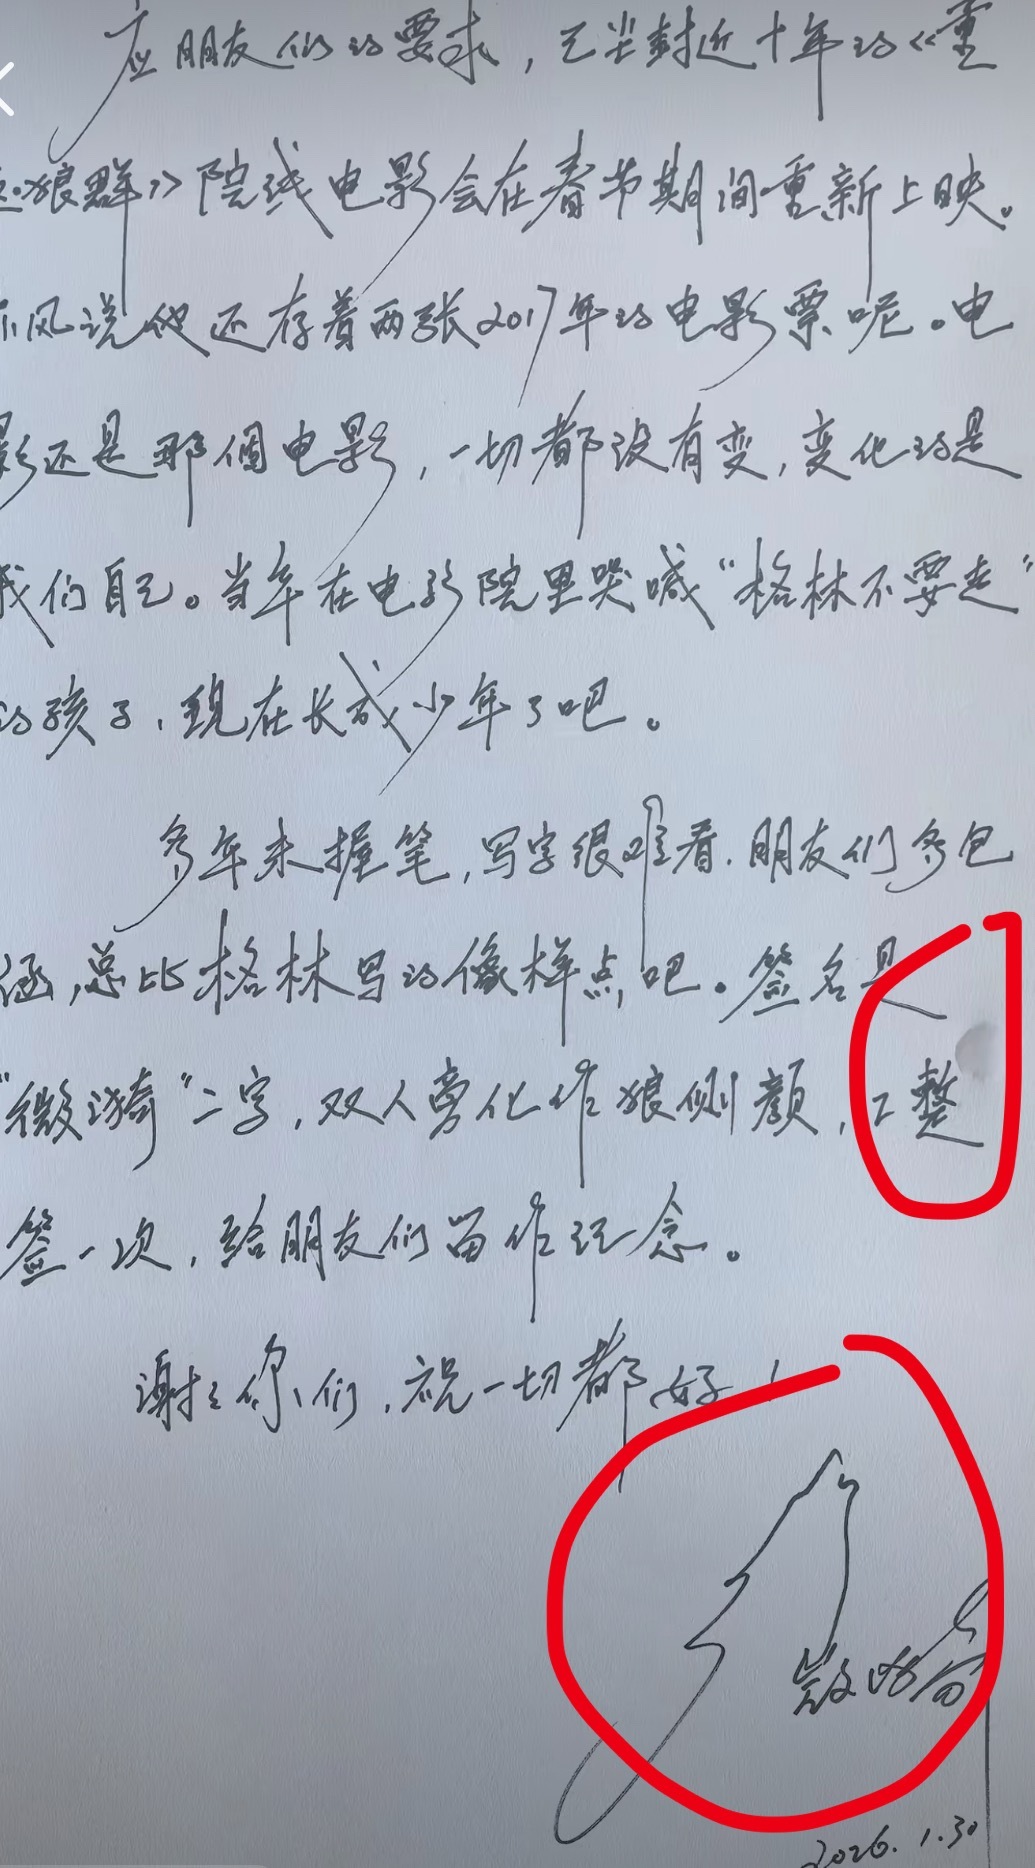 应朋友们的要求，已尘封近十年的《重
返·狼群》院线电影会在春节期间重新上映。
亦风说他还存着两张2017年的电影票呢。电
影还是那個电影，一切都没有变，变化的是
我们自己。当年在电影院里哭喊“格林不要走”
的孩子，现在长成少年了吧。
多年未握笔，写字很难看，朋友们多包
涵，总比格林写的像样点吧。签名是
“微漪”二字，双人旁化作狼侧颜，工整
签一次，给朋友们留作纪念。
谢谢你们，祝一切都好！
微漪
2026.1.30